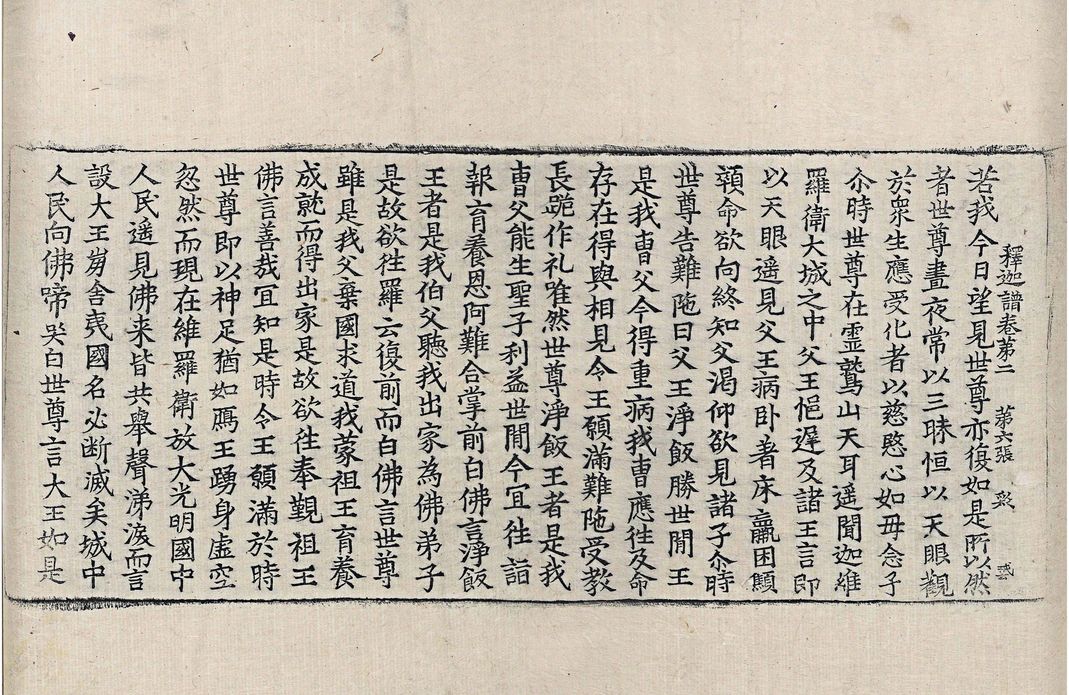 釋迦譜卷第二 第六張
若我今日望見世尊亦復如是所以然
者世尊晝夜常以三昧恒以天眼觀
於衆生應受化者以慈愍心如母念子
尒時世尊在霊鷲山天耳遥聞迦維
羅衛大城之中父王悒遟及諸王言即
以天眼遥見父王病卧著床羸困顦
顇命欲向終知父渇仰欲見諸子尒時
世尊告難陁曰父王淨飯勝世閒王
是我曺父今得重病我曺應徃及命
存在得與相見令王願滿難陁受教
長跪作礼唯然世尊淨飯王者是我
曺父能生聖子利益世閒今冝徃詣
報育養恩阿難合掌前白佛言淨飯
王者是我伯父聽我出家為佛弟子
是故欲徃羅云復前而白佛言世尊
雖是我父棄國求道我蒙祖王育養
成就而得出家是故欲徃奉覲祖王
佛言善哉冝知是時令王願滿於時
世尊即以神足猶如鴈王踴身虛空
忽然而現在維羅衛放大光明國中
人民遥見佛来皆共舉聲涕淚而言
設大王崩舍夷國名必断滅矣城中
人民向佛啼哭白世尊言大王如是